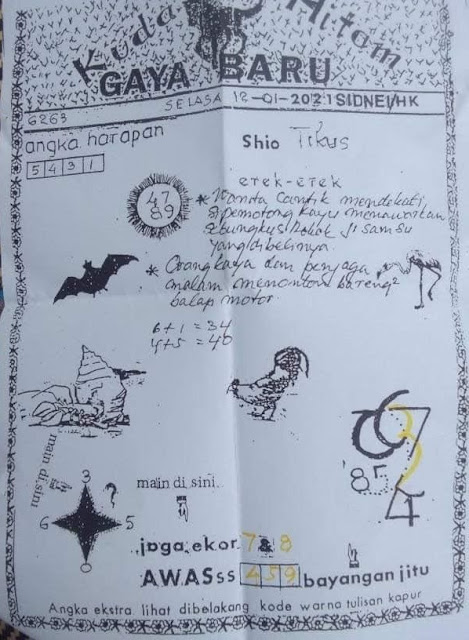 Kuda Hitam
GAYA BARU
SELASA 12-01-2021 SIDNEI/HK
6263
angka harapan
5 4 3 1
Shio Tikus
47
89
erek-erek
* Wanita cantik mendekati
pemotong kayu menawarkan
sebungkus Rokok Ji Sam Su
yang dibelinya.
* Orang kaya dan penjaga
malam menonton bareng²
balap motor
6+1=34
4+5=40
67
3
'85
4
main di sini
?
3
6 5
0
main di sini
jaga ekor 7 & 8
AWASss 4 5 9 bayangan jitu
Angka ekstra lihat dibelakang kode warna tulisan kapur